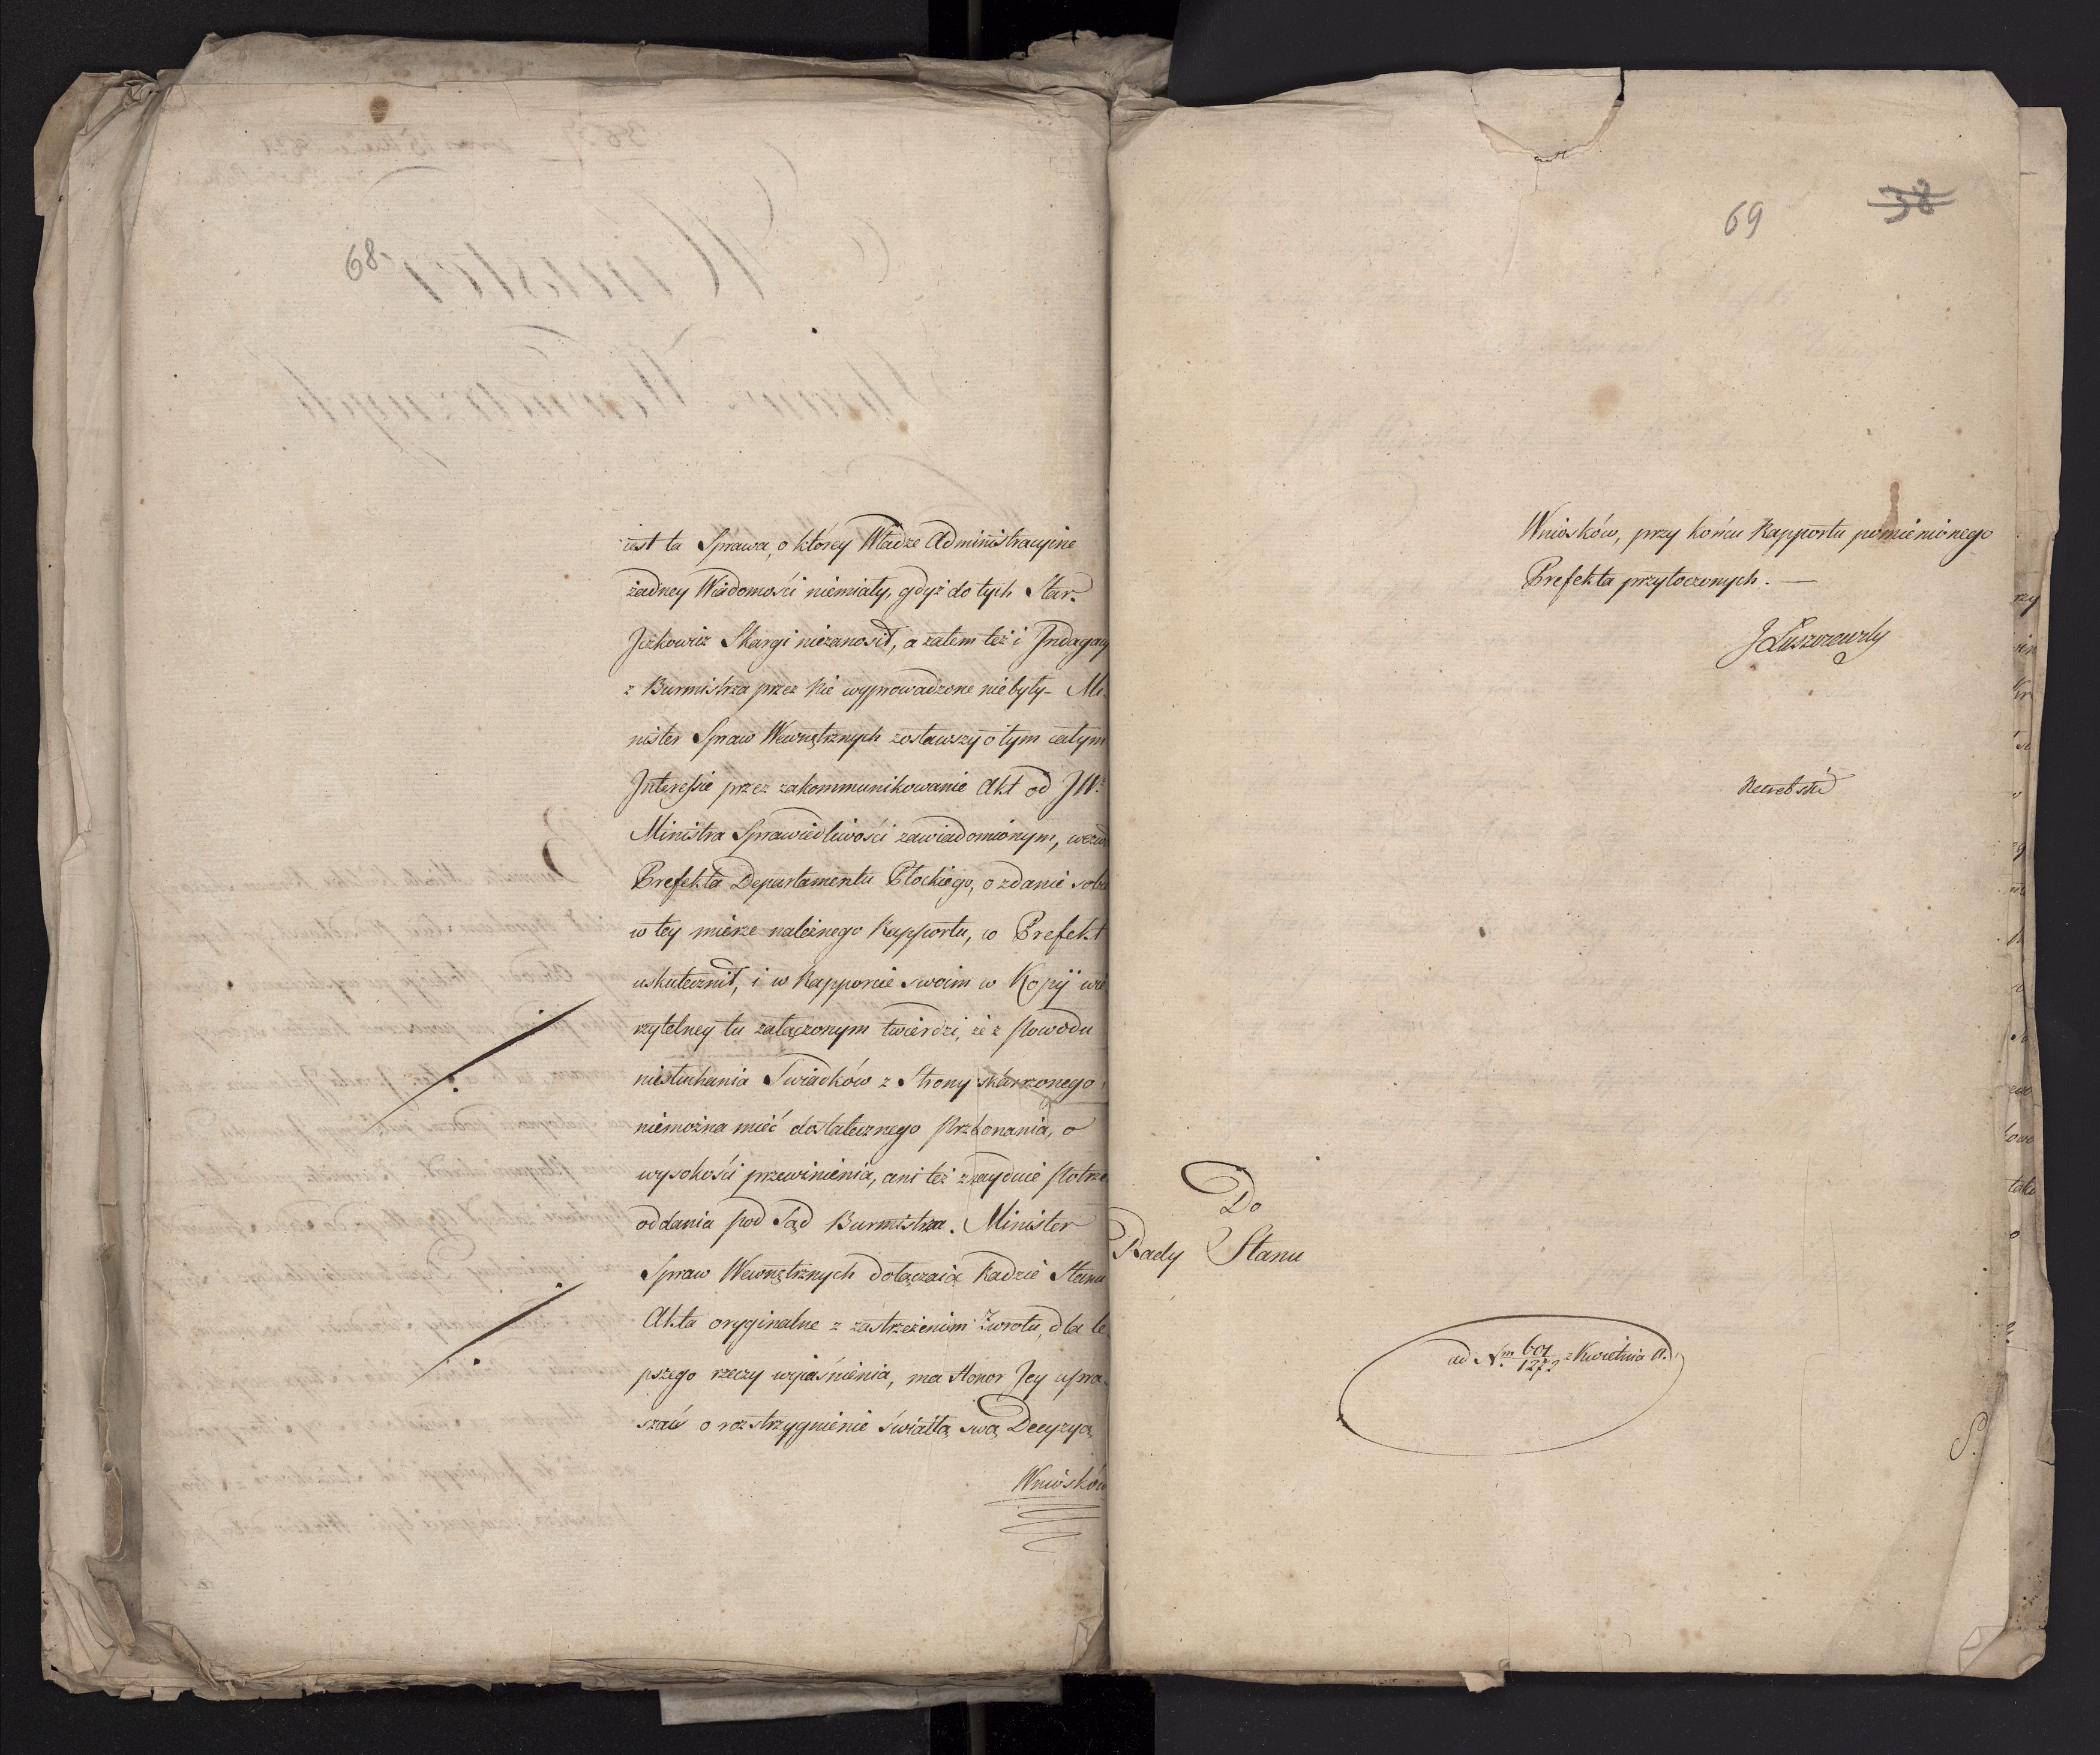 68
iest ta Sprawa, o którey Władze Administracyine
żadney Wiadomości niemiały, gdyż do tych Star.
Jckowicz Skargi niezanosił, a zatem też i Indagacy
z Burmistrza przez nie wyprowadzone niebyły – Mi-
nister Spraw Wewnętrznych zostawszy o tym całym
Interessie przez zakommunikowanie Akt od JW.
Ministra Sprawiedliwości zawiadomionym, wezwa
Prefekta Departamentu Płockiego, o zdanie sobie
w tey mierze należnego Rapportu, co Prefekt
uskutecznił, i w Rapporcie swoim w Kopij wie
rzytelney tu załączonym twierdzi, że z Powodu
niesłuchania Świadków z Strony skarżonego
niemożna mieć dostatecznego Przekonania, o
wysokości przewinienia, ani też znayduie Potrze
oddania pod Sąd Burmistrza. Minister
Spraw Wewnętrznych dołączaiąc Radzie Stanu
Akta oryginalne z zastrzeżeniem Zwrotu, dla le
pszego rzeczy wyiaśnienia, ma Honor Jey upra-
szać o rozstrzygnienie światłą swą Decyzyą
Wniosków
69
38
Wniosków, przy końcu Rapportu pomienionego
Prefekta przytoczonych. —
J Łuszczewsky
Do
Rady Stanu
ad Nm 601/1272 z Kwietnia